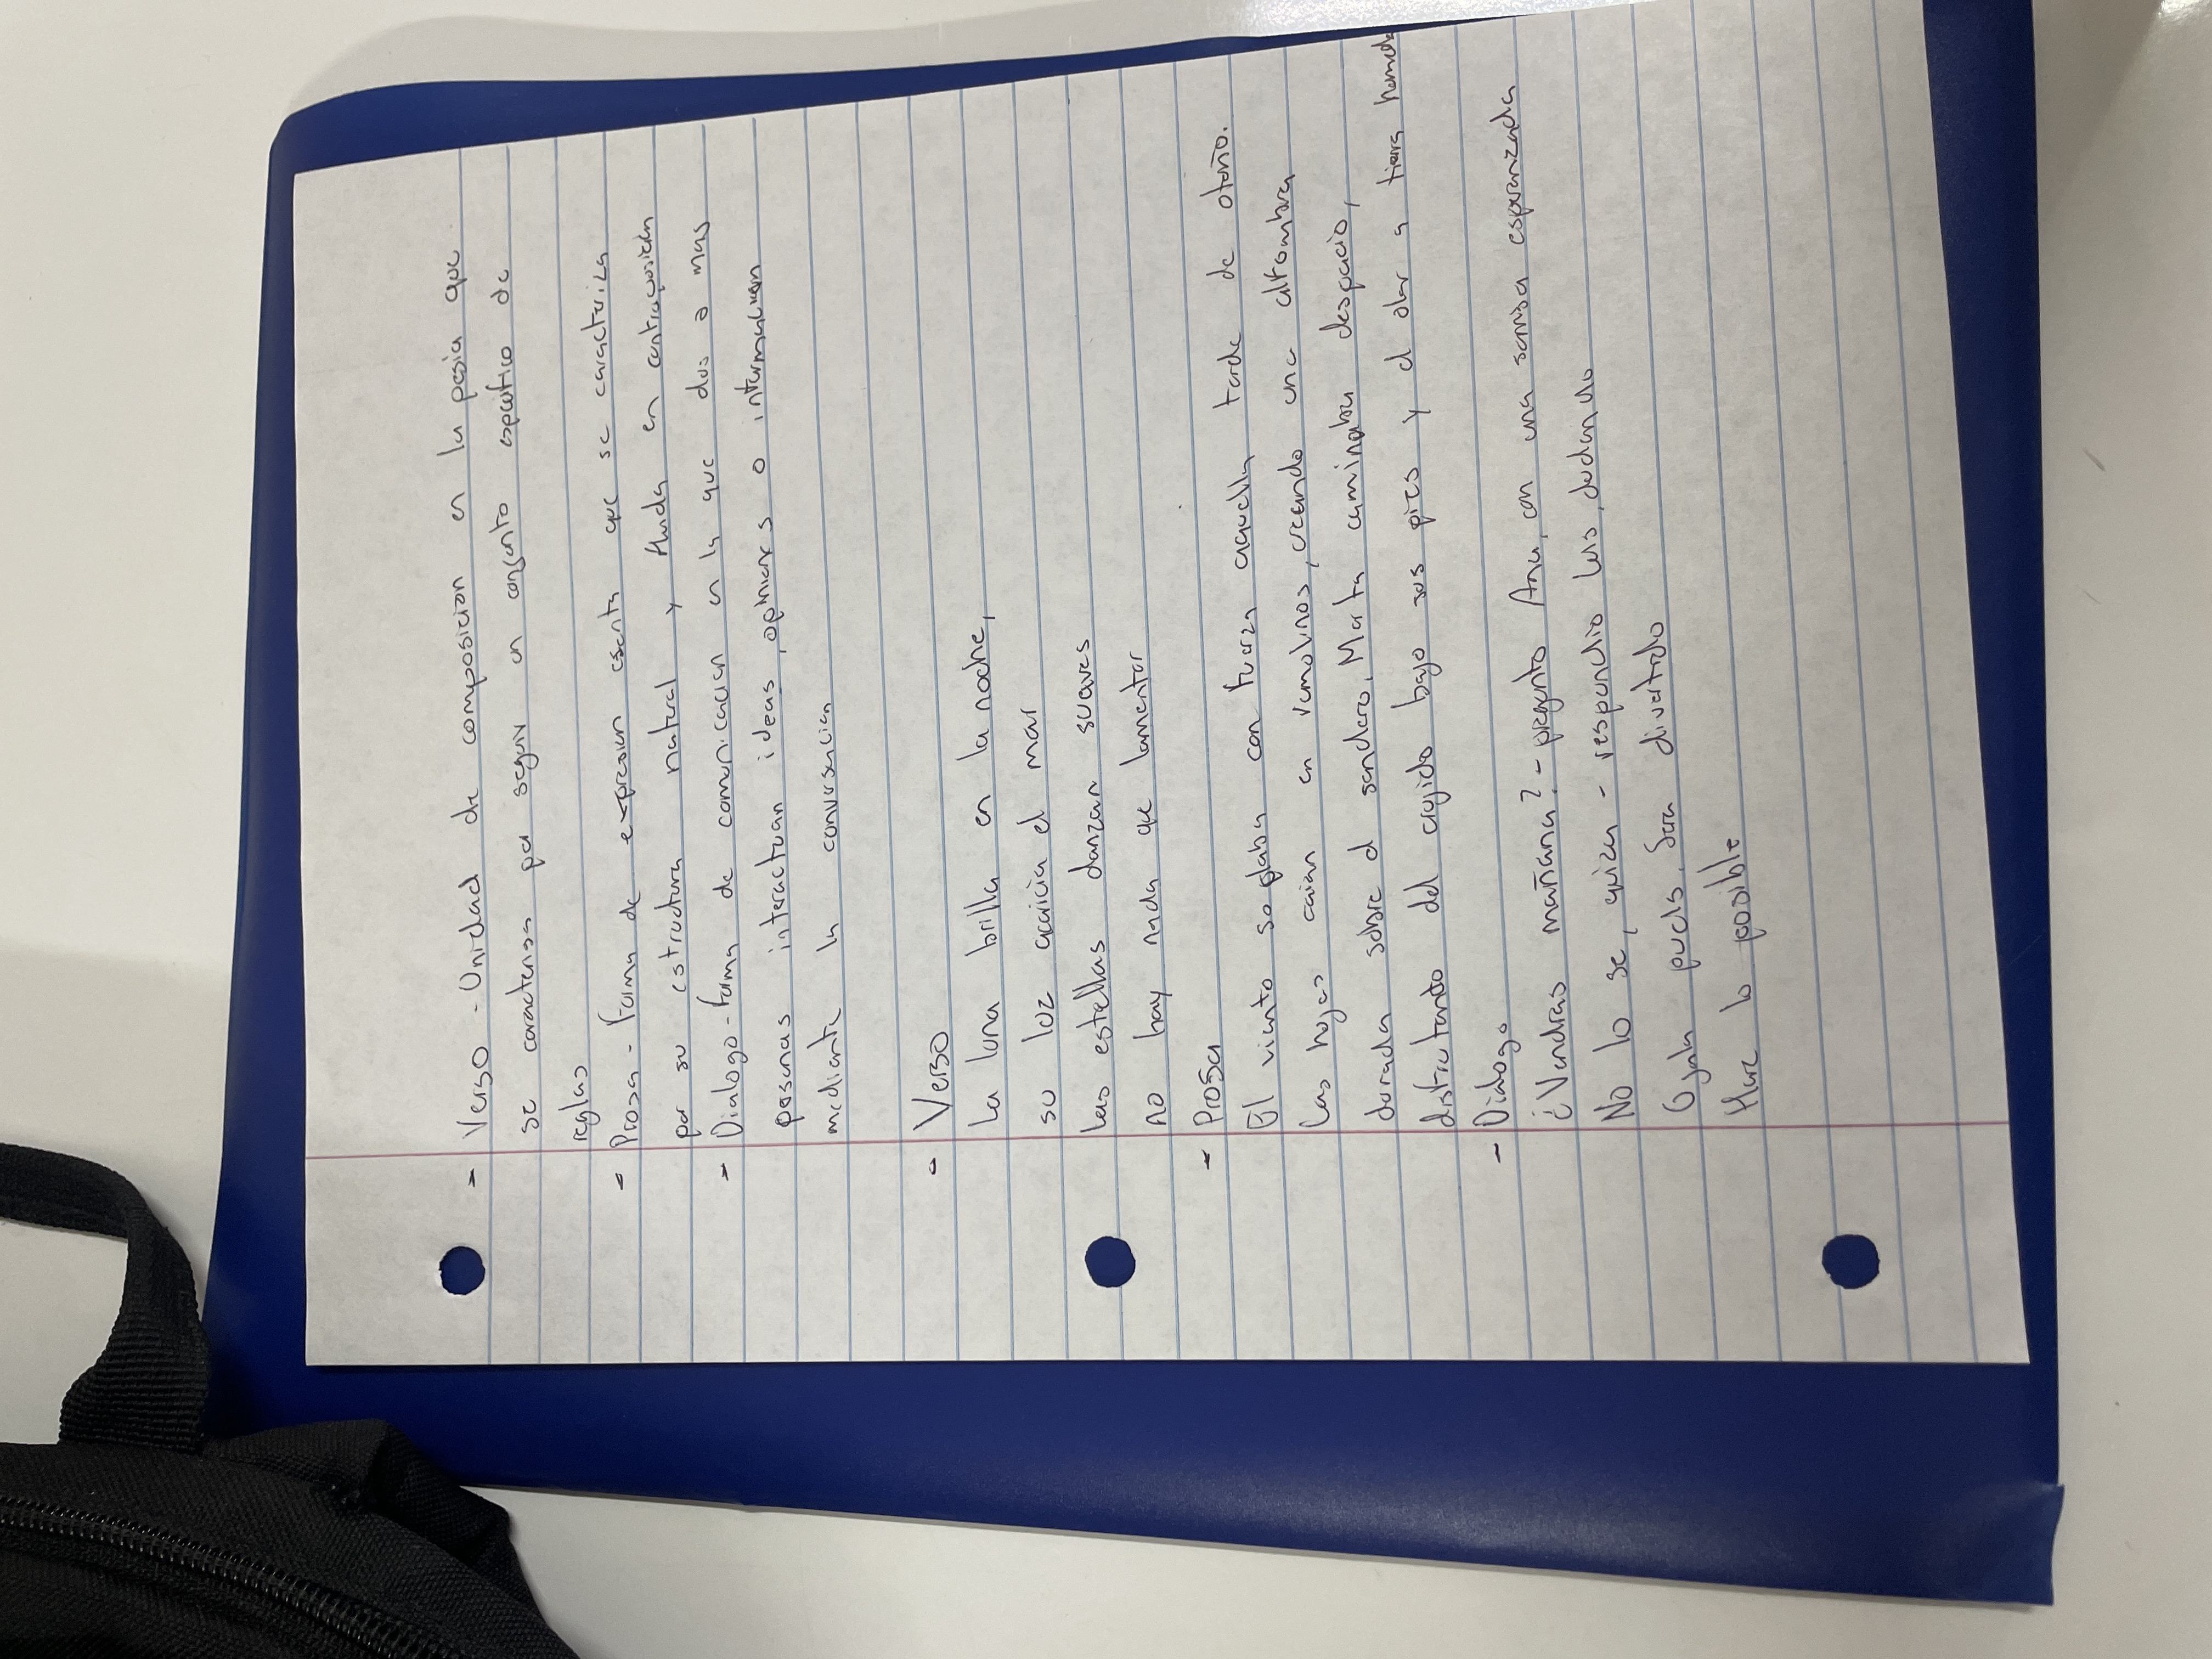 - Verso - Unidad de composicion en la pesia que
se caracterisa por seguir un conjunto especifico de
reglas
- Prosa - Forma de expresion escrita que se caracteriza
por su estructura natural y fluida en contraposición
- Dialogo - forma de comunicacion en la que dos o mas
personas interactuan ideas, opiniones o informacion
mediante la conversacion
- Verso
La luna brilla en la noche,
su luz acaricia el mar
las estellas danzan suaves
no hay nada que lamentar
- Prosa
El viento soplaba con fuerza aquella tarde de otoño.
Las hojas caian en remolinos, creando una alfombra
dorada sobre el sendero. Marta caminaba despacio,
disfrutando del crujido bajo sus pies y el olor a tierra humeda
- Dialogo
¿Vendras mañana? - pregunto Ana, con una sonrisa esperanzada
No lo se, quiza - respondio luis, dudando
Ojala pueds. Sera divertido
Hare lo posible